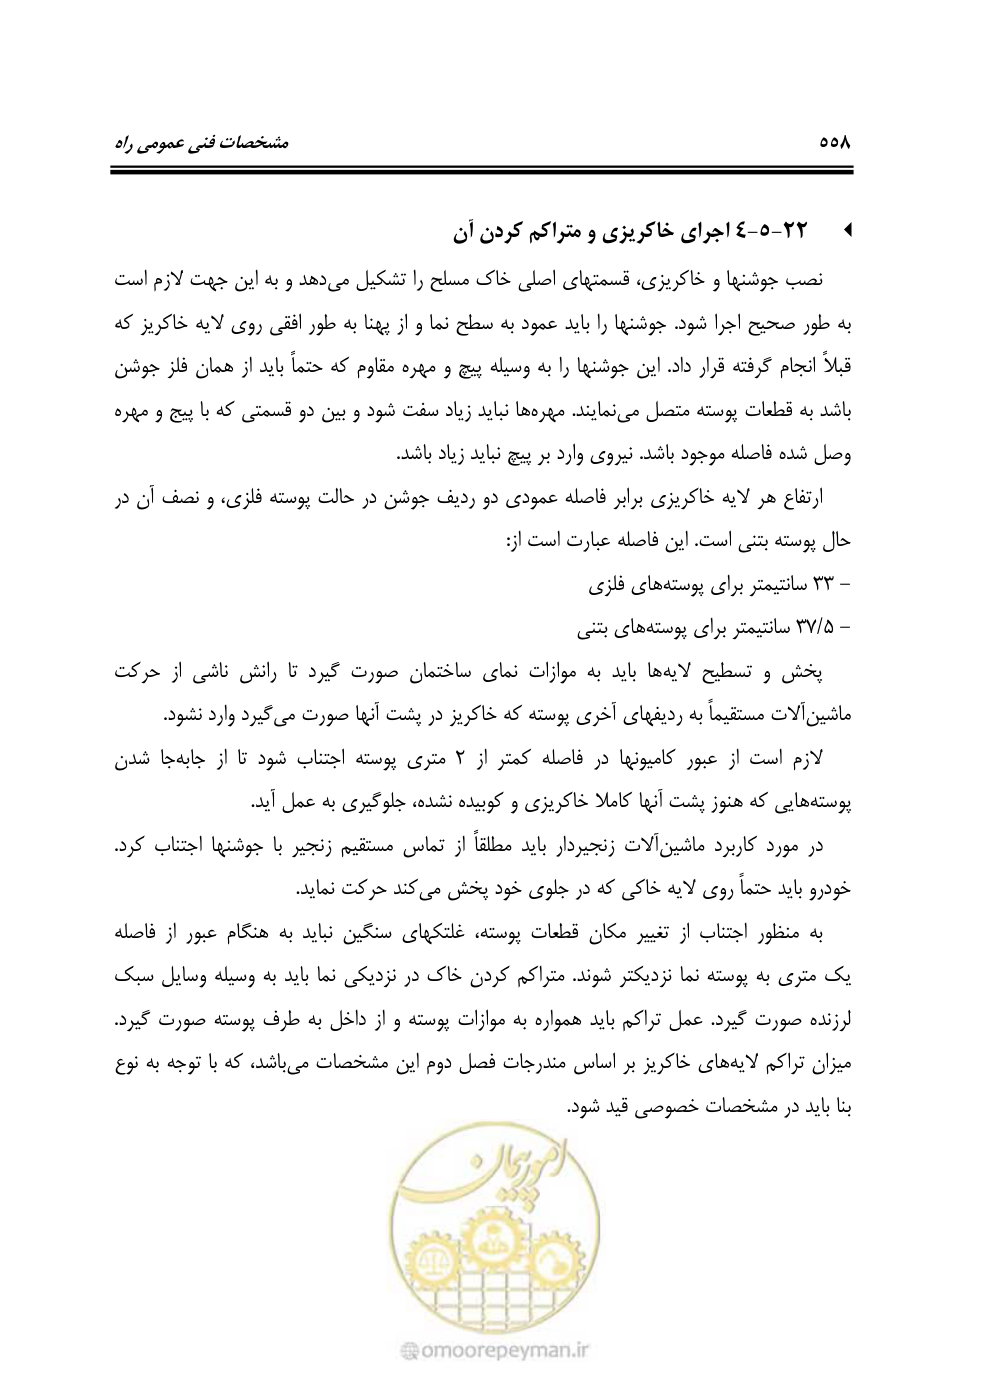 ۵۵۸ مشخصات فنی عمومی راه
۲۲-۵-۴ اجرای خاکریزی و متراکم کردن آن
نصب جوشنها و خاکریزی، قسمتهای اصلی خاک مسلح را تشکیل می‌دهد و به این جهت لازم است
به طور صحیح اجرا شود. جوشنها را باید عمود به سطح نما و از پهنا به طور افقی روی لایه خاکریز که
قبلاً انجام گرفته قرار داد. این جوشنها را به وسیله پیچ و مهره مقاوم که حتماً باید از همان فلز جوشن
باشد به قطعات پوسته متصل می‌نمایند. مهره‌ها نباید زیاد سفت شود و بین دو قسمتی که با پیج و مهره
وصل شده فاصله موجود باشد. نیروی وارد بر پیچ نباید زیاد باشد.
ارتفاع هر لایه خاکریزی برابر فاصله عمودی دو ردیف جوشن در حالت پوسته فلزی، و نصف آن در
حال پوسته بتنی است. این فاصله عبارت است از:
- ۳۳ سانتیمتر برای پوسته‌های فلزی
- ۳۷/۵ سانتیمتر برای پوسته‌های بتنی
پخش و تسطیح لایه‌ها باید به موازات نمای ساختمان صورت گیرد تا رانش ناشی از حرکت
ماشین‌آلات مستقیماً به ردیفهای آخری پوسته که خاکریز در پشت آنها صورت می‌گیرد وارد نشود.
لازم است از عبور کامیونها در فاصله کمتر از ۲ متری پوسته اجتناب شود تا از جابه‌جا شدن
پوسته‌هایی که هنوز پشت آنها کاملا خاکریزی و کوبیده نشده، جلوگیری به عمل آید.
در مورد کاربرد ماشین‌آلات زنجیردار باید مطلقاً از تماس مستقیم زنجیر با جوشنها اجتناب کرد.
خودرو باید حتماً روی لایه خاکی که در جلوی خود پخش می‌کند حرکت نماید.
به منظور اجتناب از تغییر مکان قطعات پوسته، غلتکهای سنگین نباید به هنگام عبور از فاصله
یک متری به پوسته نما نزدیکتر شوند. متراکم کردن خاک در نزدیکی نما باید به وسیله وسایل سبک
لرزنده صورت گیرد. عمل تراکم باید همواره به موازات پوسته و از داخل به طرف پوسته صورت گیرد.
میزان تراکم لایه‌های خاکریز بر اساس مندرجات فصل دوم این مشخصات می‌باشد، که با توجه به نوع
بنا باید در مشخصات خصوصی قید شود.
امور پیمان
@omoorepeyman.ir